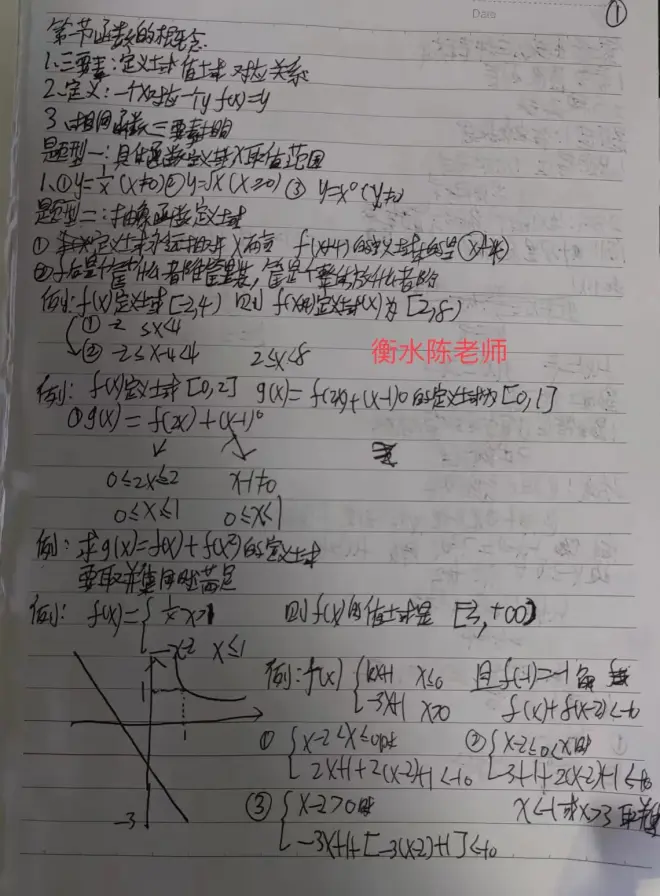 Date
①
第一节函数的概念
1.三要素:定义域 值域 对应关系
2.定义:一个x对应一个y f(x)=y
3.相同函数 三要素相同
题型一:具体函数定义域X取值范围
1.①y=1/x (x≠0)②y=√x (x≥0) ③ y=x⁰ (x≠0)
题型二:抽象函数定义域
① 定义域永远相对 X 而言 f(x+4)的定义域
例: f(x)定义域[-2,4) 则 定义域(x)为 [2,8)
① -2 ≤x<4
② -2≤x-4<4 2≤x<8
衡水陈老师
例: f(x)定义域[0,2] g(x)=f(2x)+(x-1)0的定义域为[0,1]
①g(x)=f(2x)+(x-1)⁰
0≤2x≤2 x-1≠0
0≤x≤1 0≤x<1
例:求g(x)=f(x)+f(x²)的定义域
同时满足
例: f(x)={ 1/x x>1 则f(x)的值域是 +∞)
x≤1
1
1
-3
例:f(x) { x≤0 且f(-1)=-1
-3x+1 x>0 f(x)+f(x-2)<-10
① { x-2<x≤0时 ② { x-2≤0<x时
2x+1+2(x-2)+1<-10
③ { x-2>0时 x<-1或x>3
-3x+1+[-3(x-2)+1]<-10